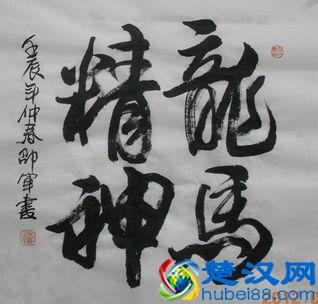 龍馬
精神
壬辰年仲春邵軍書
楚汉网
hubei88.com